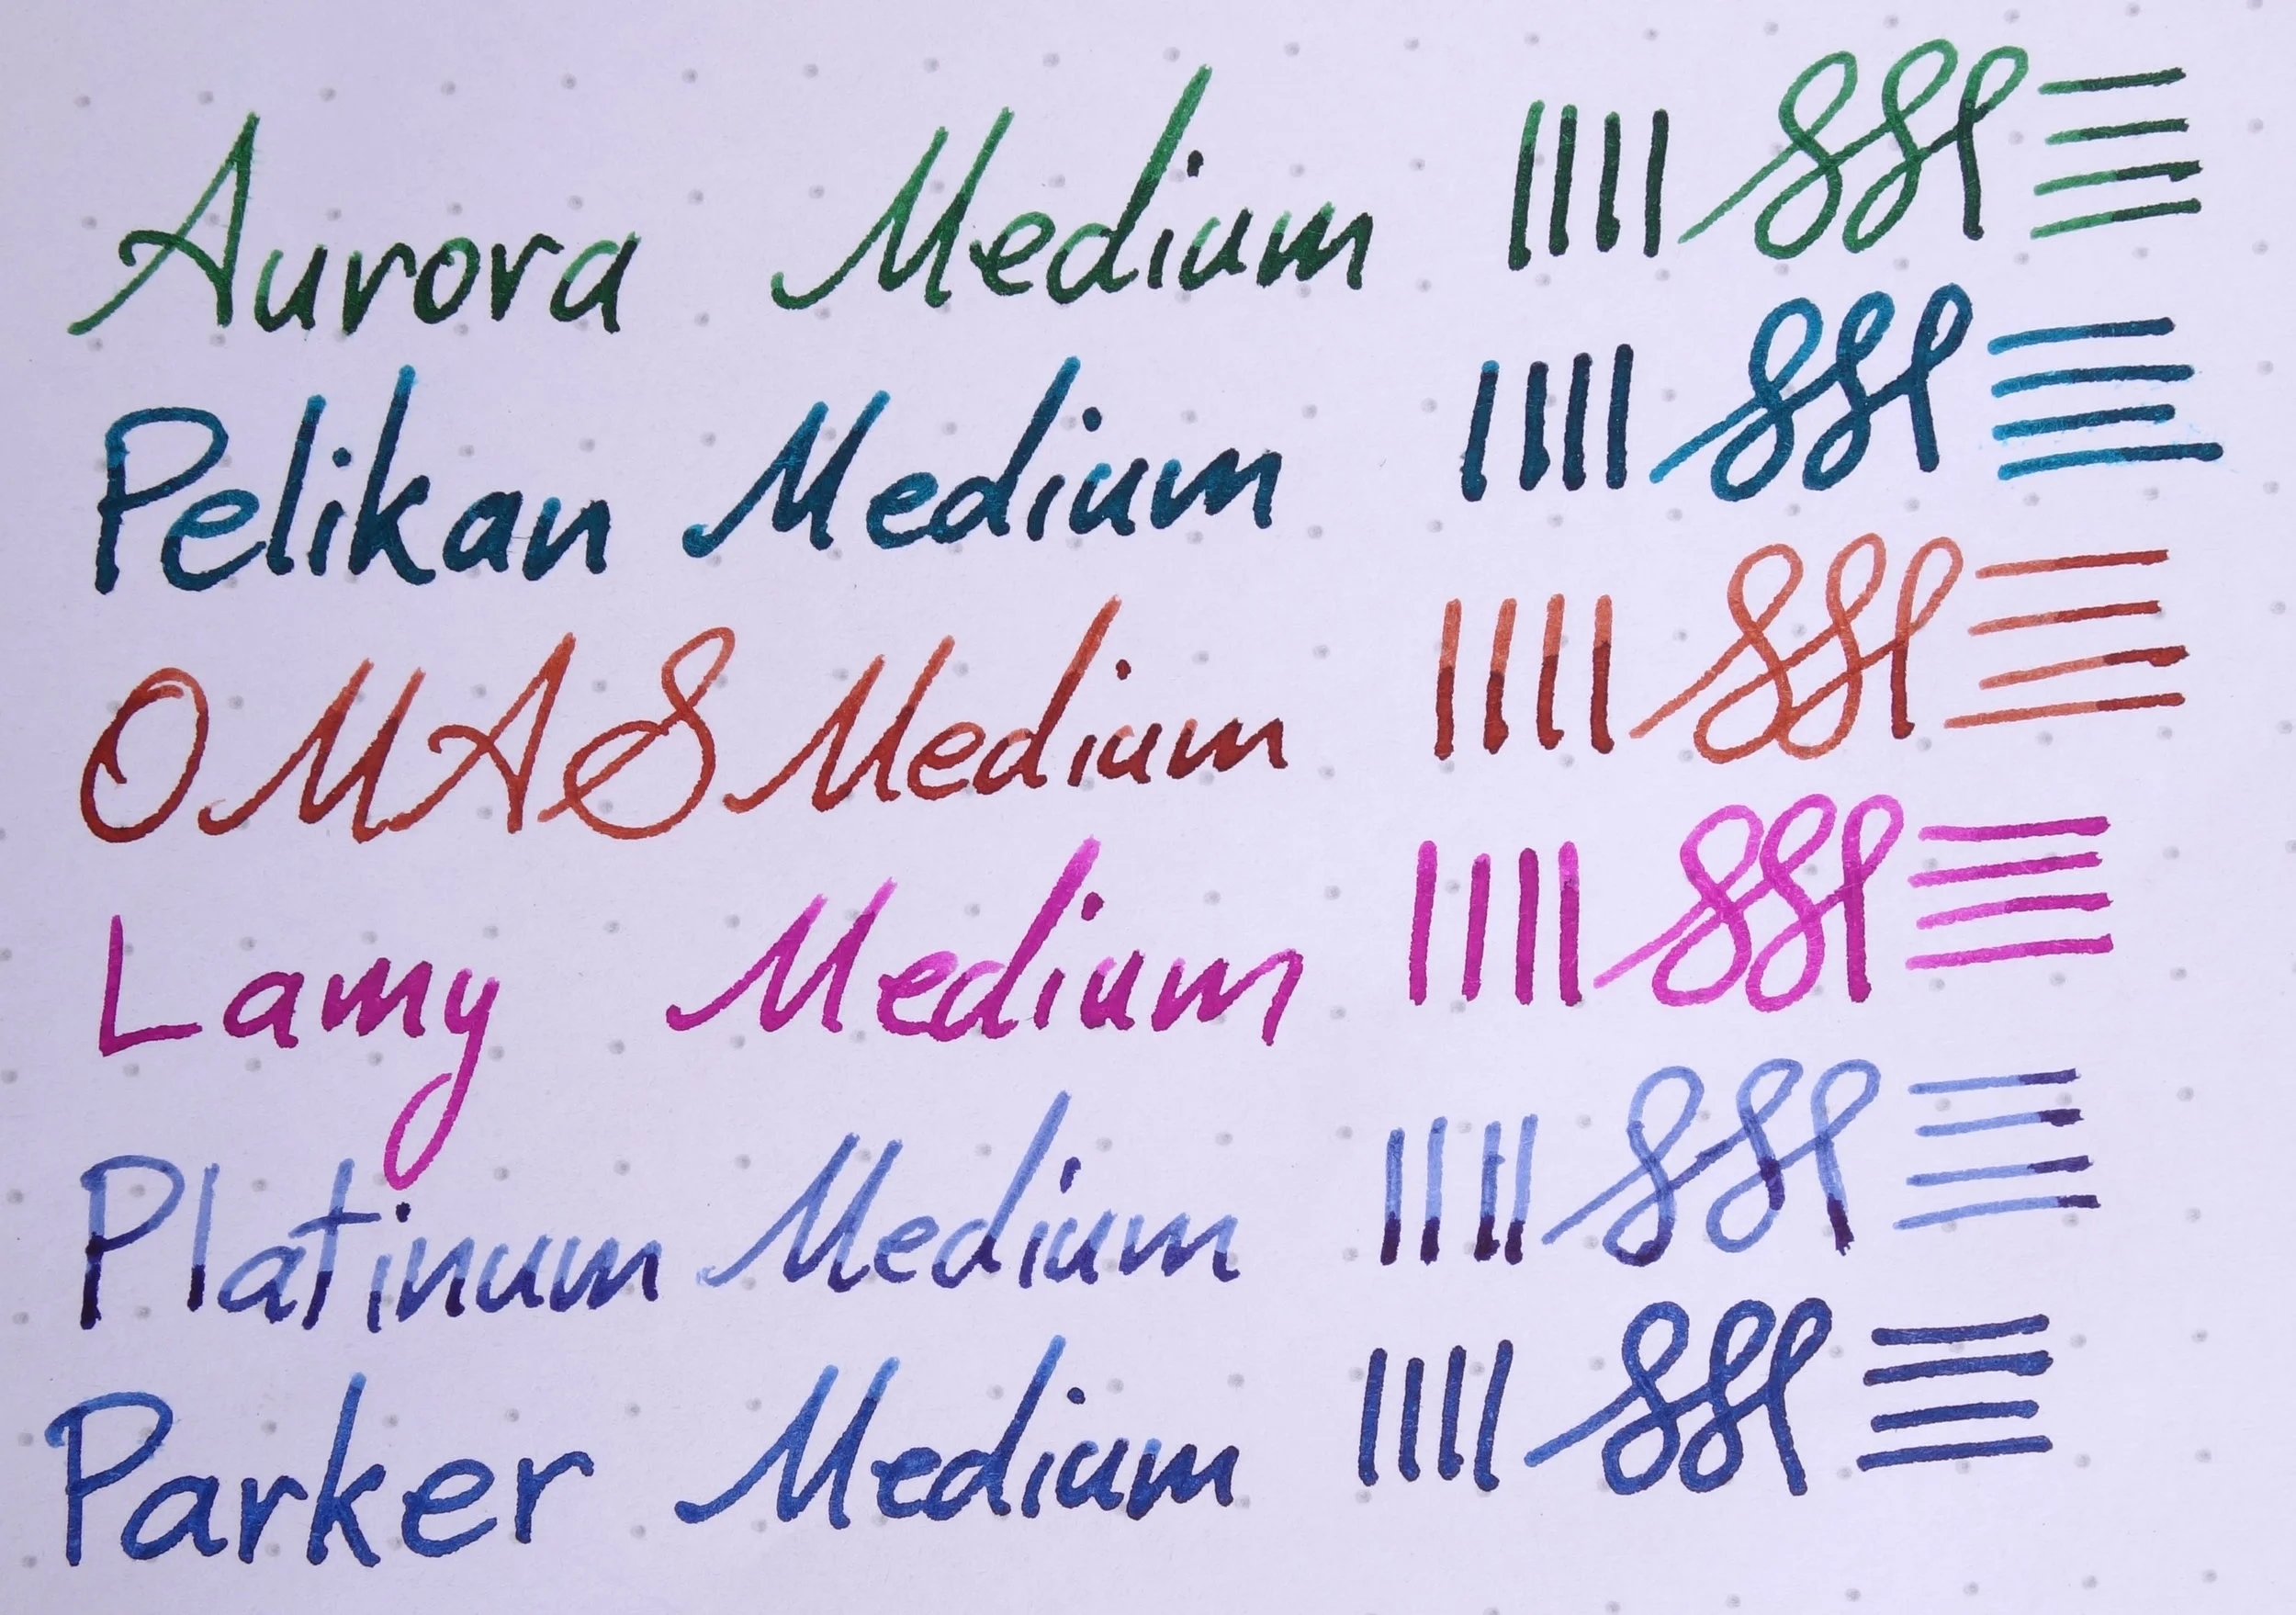 Aurora Medium
Pelikan Medium
OMAS Medium
Lamy Medium
Platinum Medium
Parker Medium